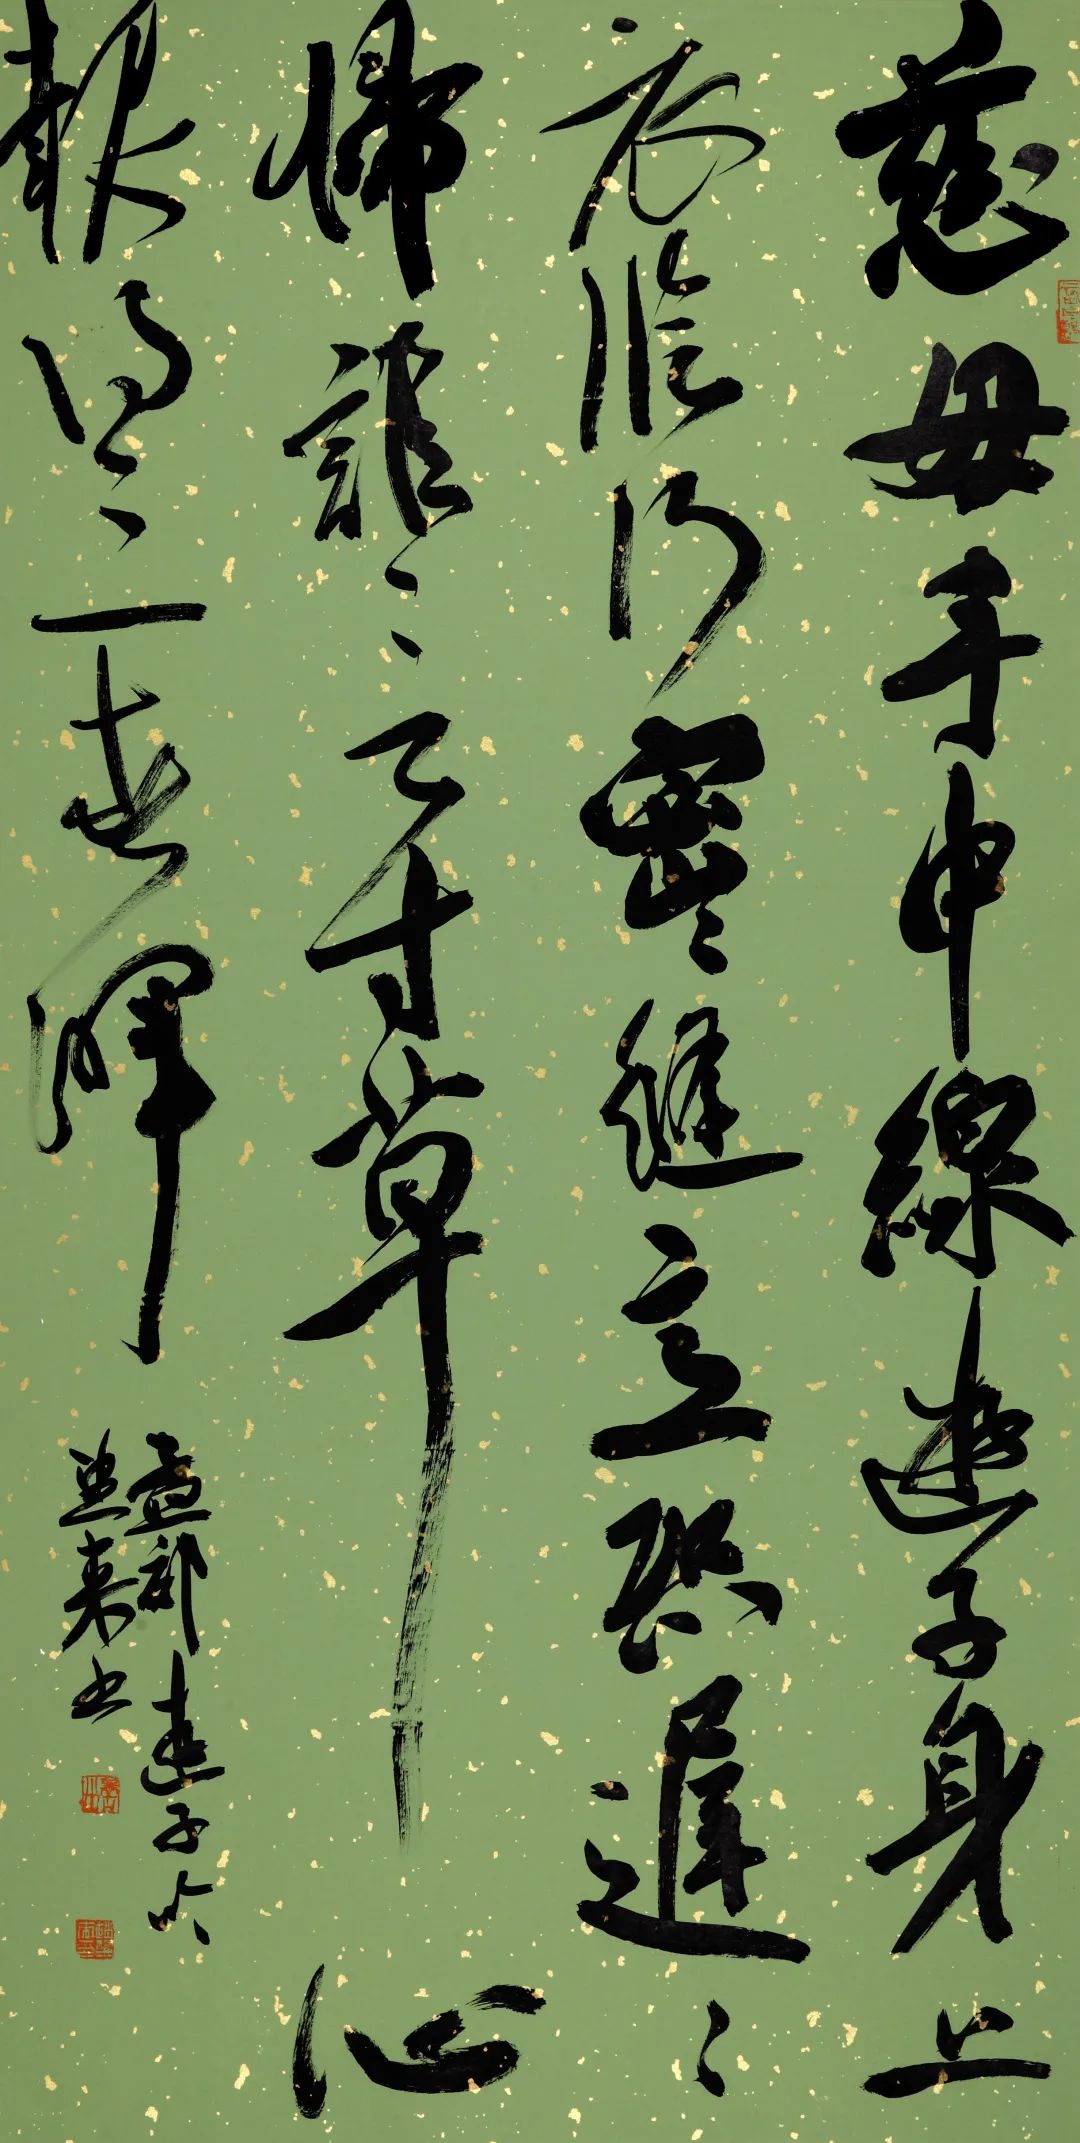 慈母手中線遊子身上
衣臨行密々縫意恐遲々
歸誰言寸草心
報得三春暉
孟郊遊子吟
来书